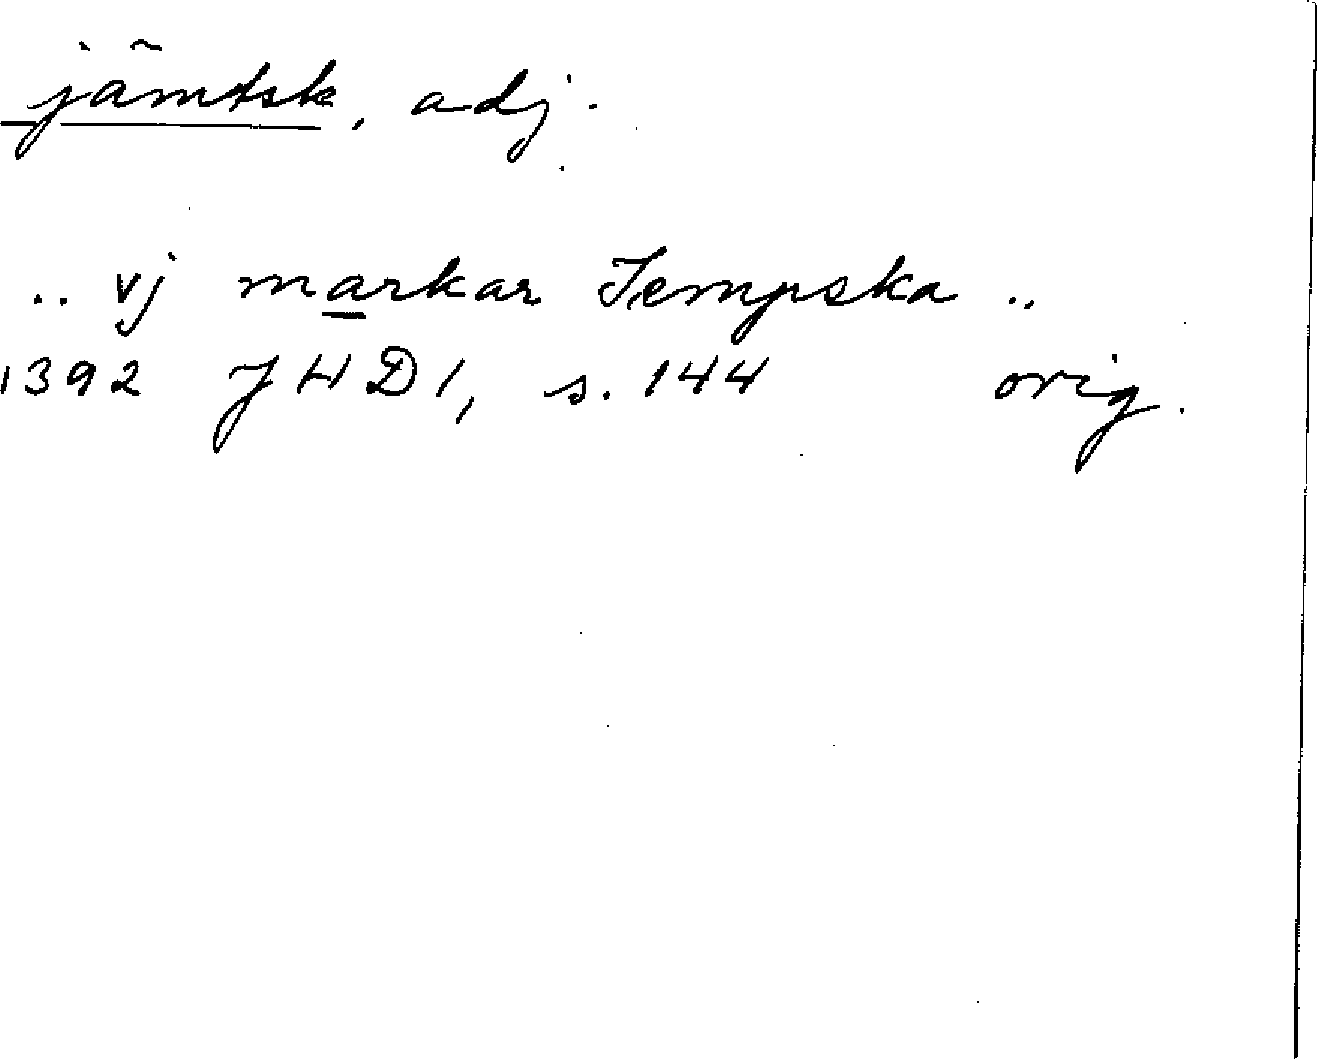 jämtsk, adj.
.. vj markar Jempska ..
1392 JHD 1, s. 144 orig.